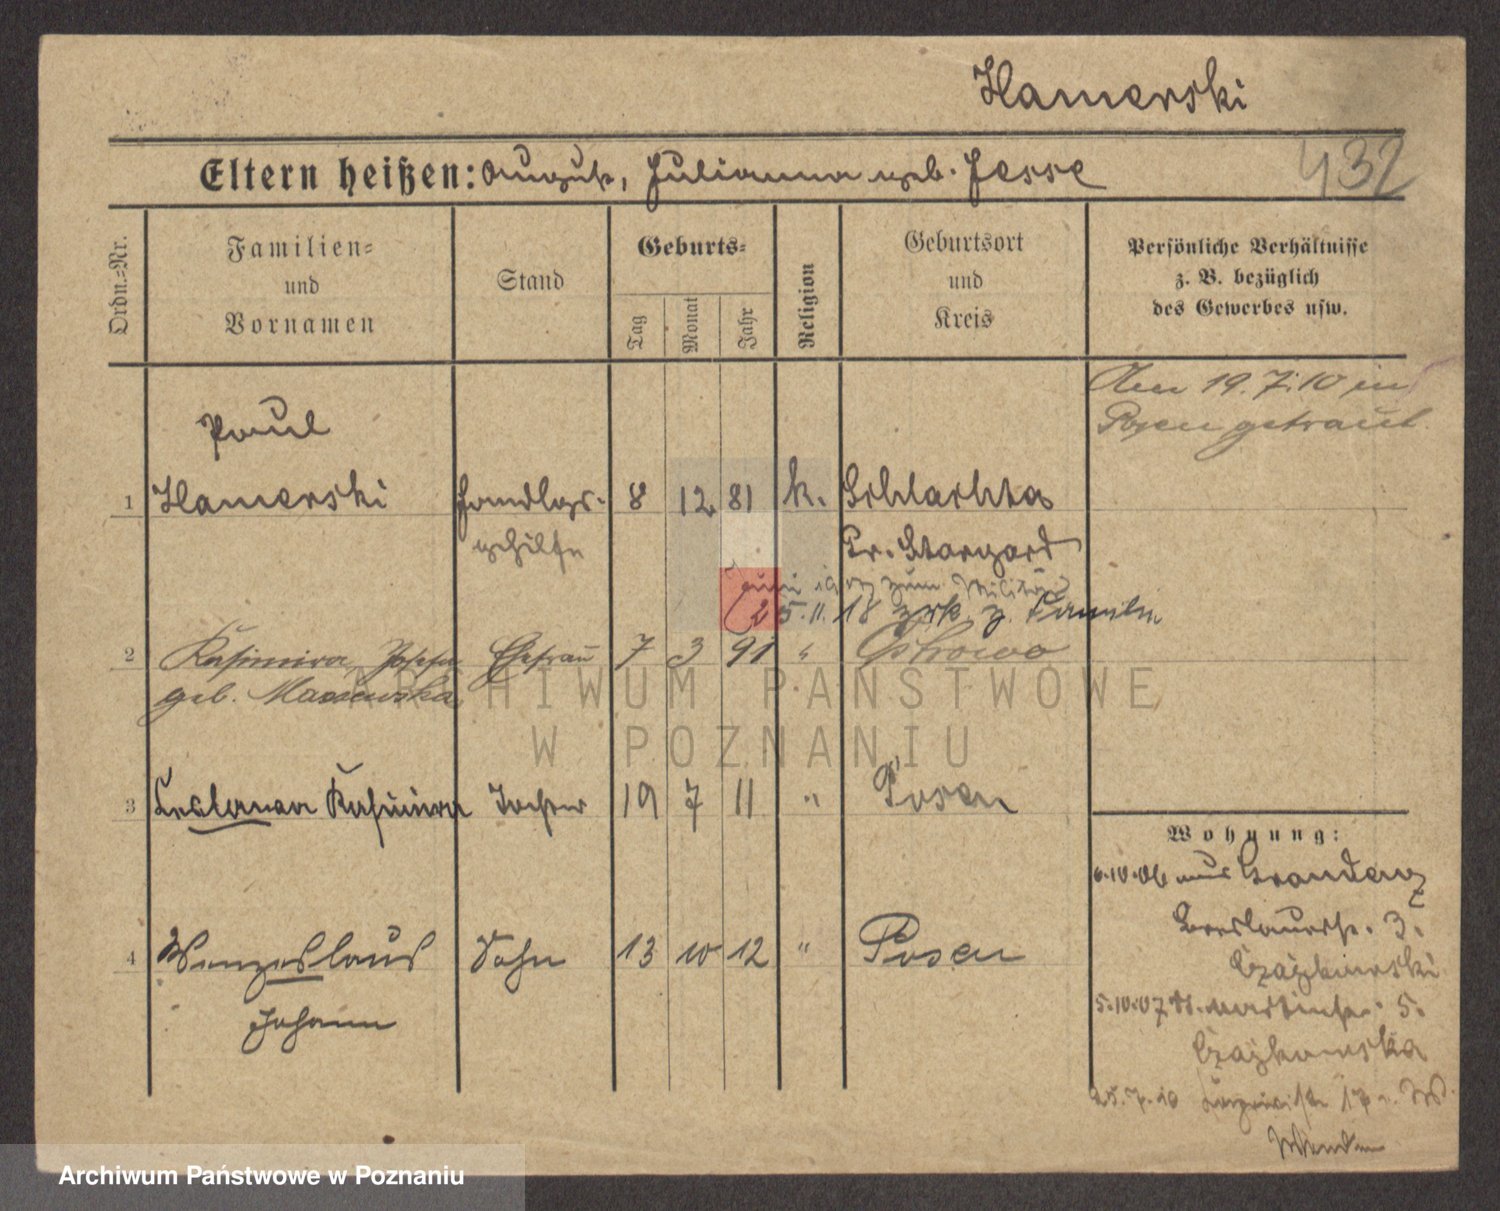 Hamerski
432
Eltern heißen: August, Julianna geb. Jesse
Ordn.-Nr.
Familien-
und
Vornamen
Stand
Geburts-
Tag
Monat
Jahr
Religion
Geburtsort
und
Kreis
Persönliche Verhältnisse
z. B. bezüglich
des Gewerbes usw.
Am 19.7.10 in
Posen getraut.
Paul
1 Hamerski Handlgs- 8 12. 81 k. Schlachta
gehilfe Pr. Stargard
Juni zum Militär
25.11.18 zrk. z. Familie
2 Kasimira, Josefa Ehefrau 7 3 91 " Ostrowo
geb.
ARCHIWUM PAŃSTWOWE
W POZNANIU
3 Kasimira Tochter 19 7 11 " Posen
4 Wenzeslaus Sohn 13 10 12 " Posen
Johann
Wohnung:
6.10.06 aus Graudenz
Breslauerstr. 3.
5.10.07 St. Martinstr. 5.
25.7.10
Archiwum Państwowe w Poznaniu